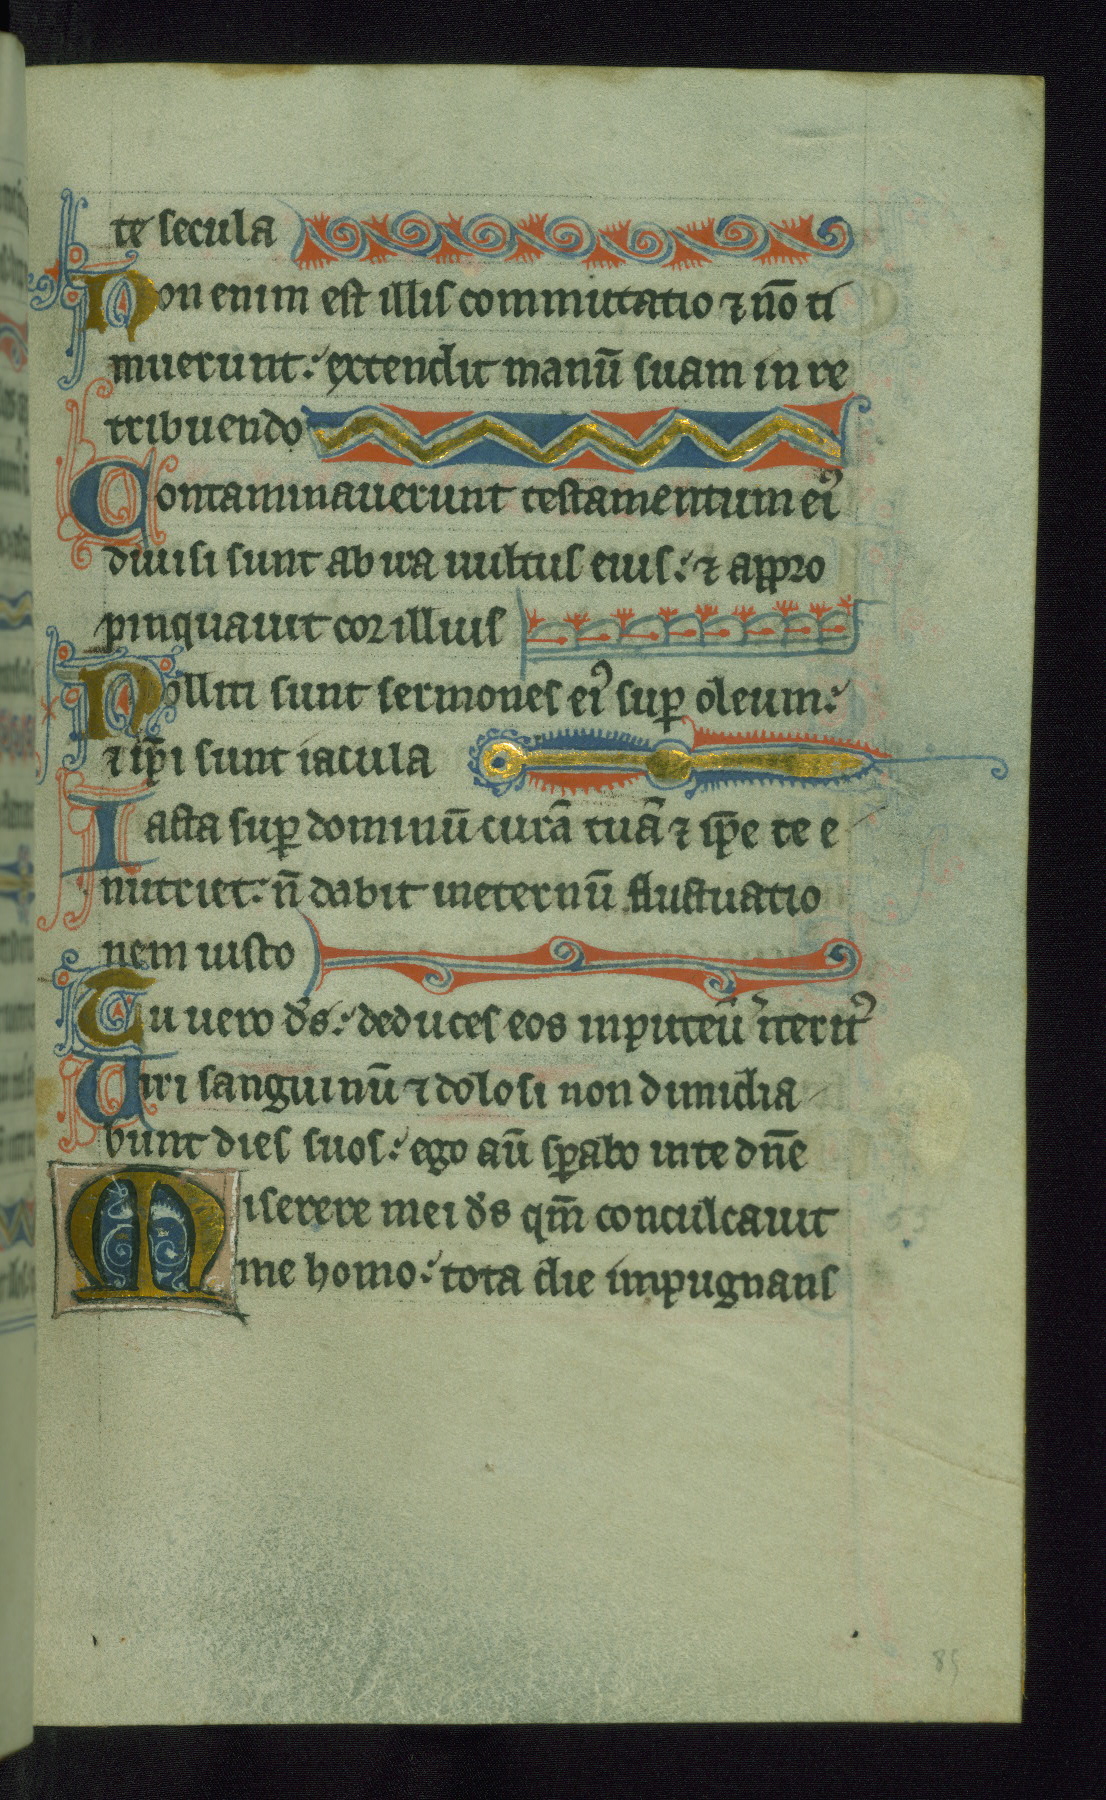 te secula
Non enim est illis commutatio ⁊ nō ti
muerunt: extendit manū suam in re
tribuendo
Contaminauerunt testamentum ei᾽
diuisi sunt ab ira uultus eius: ⁊ appro
pinquauit cor illius
Molliti sunt sermones ei᾽ sup oleum:
⁊ ip̄i sunt iacula
Iacta sup dominū curā tuā ⁊ ip̄e te e
nutriet: n̄ dabit in eternū fluctuatio
nem iusto
Tu uero d̄s: deduces eos in puteū īterit᾽
Uiri sanguinū ⁊ dolosi non dimidia
bunt dies suos: ego aū sp̄abo in te dn̄e
Miserere mei d̄s qm̄ conculcauit
me homo: tota die impugnans
55
85